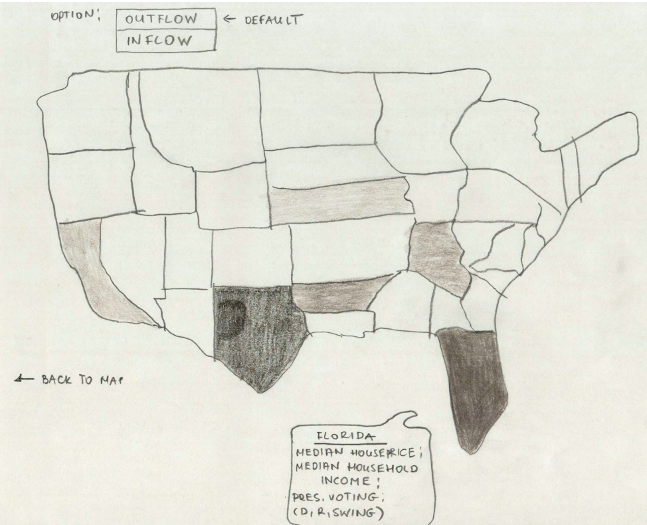 OPTION:
OUTFLOW ← DEFAULT
INFLOW
← BACK TO MAP
FLORIDA
MEDIAN HOUSEPRICE;
MEDIAN HOUSEHOLD
INCOME;
PRES. VOTING;
(D, R, SWING)